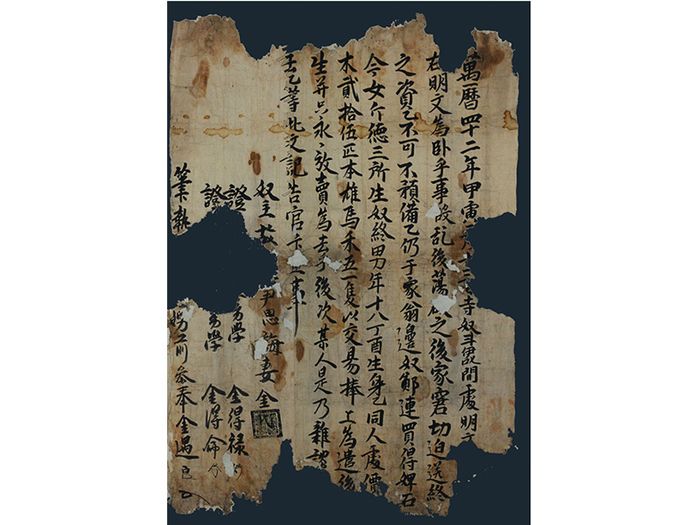 萬曆四十二年甲寅 十二 寺奴斗 間處明
右明文爲臥乎事段亂後蕩 之後家窘切迫送終
之資乙不可不預備乙仍于家翁邊奴鄭連買得婢石
今女介德三所生奴終男年十八丁酉生身乙同人處價
木貳拾伍疋本雄馬禾五一隻以交易捧上爲遣後
生幷以永永放賣爲去乎後次某人是乃雜談
 乙等此文記告官卞正事
奴主故 尹思 妻金
證 幼學 金得祿
證 幼學 金得命
筆執 前參奉金遇